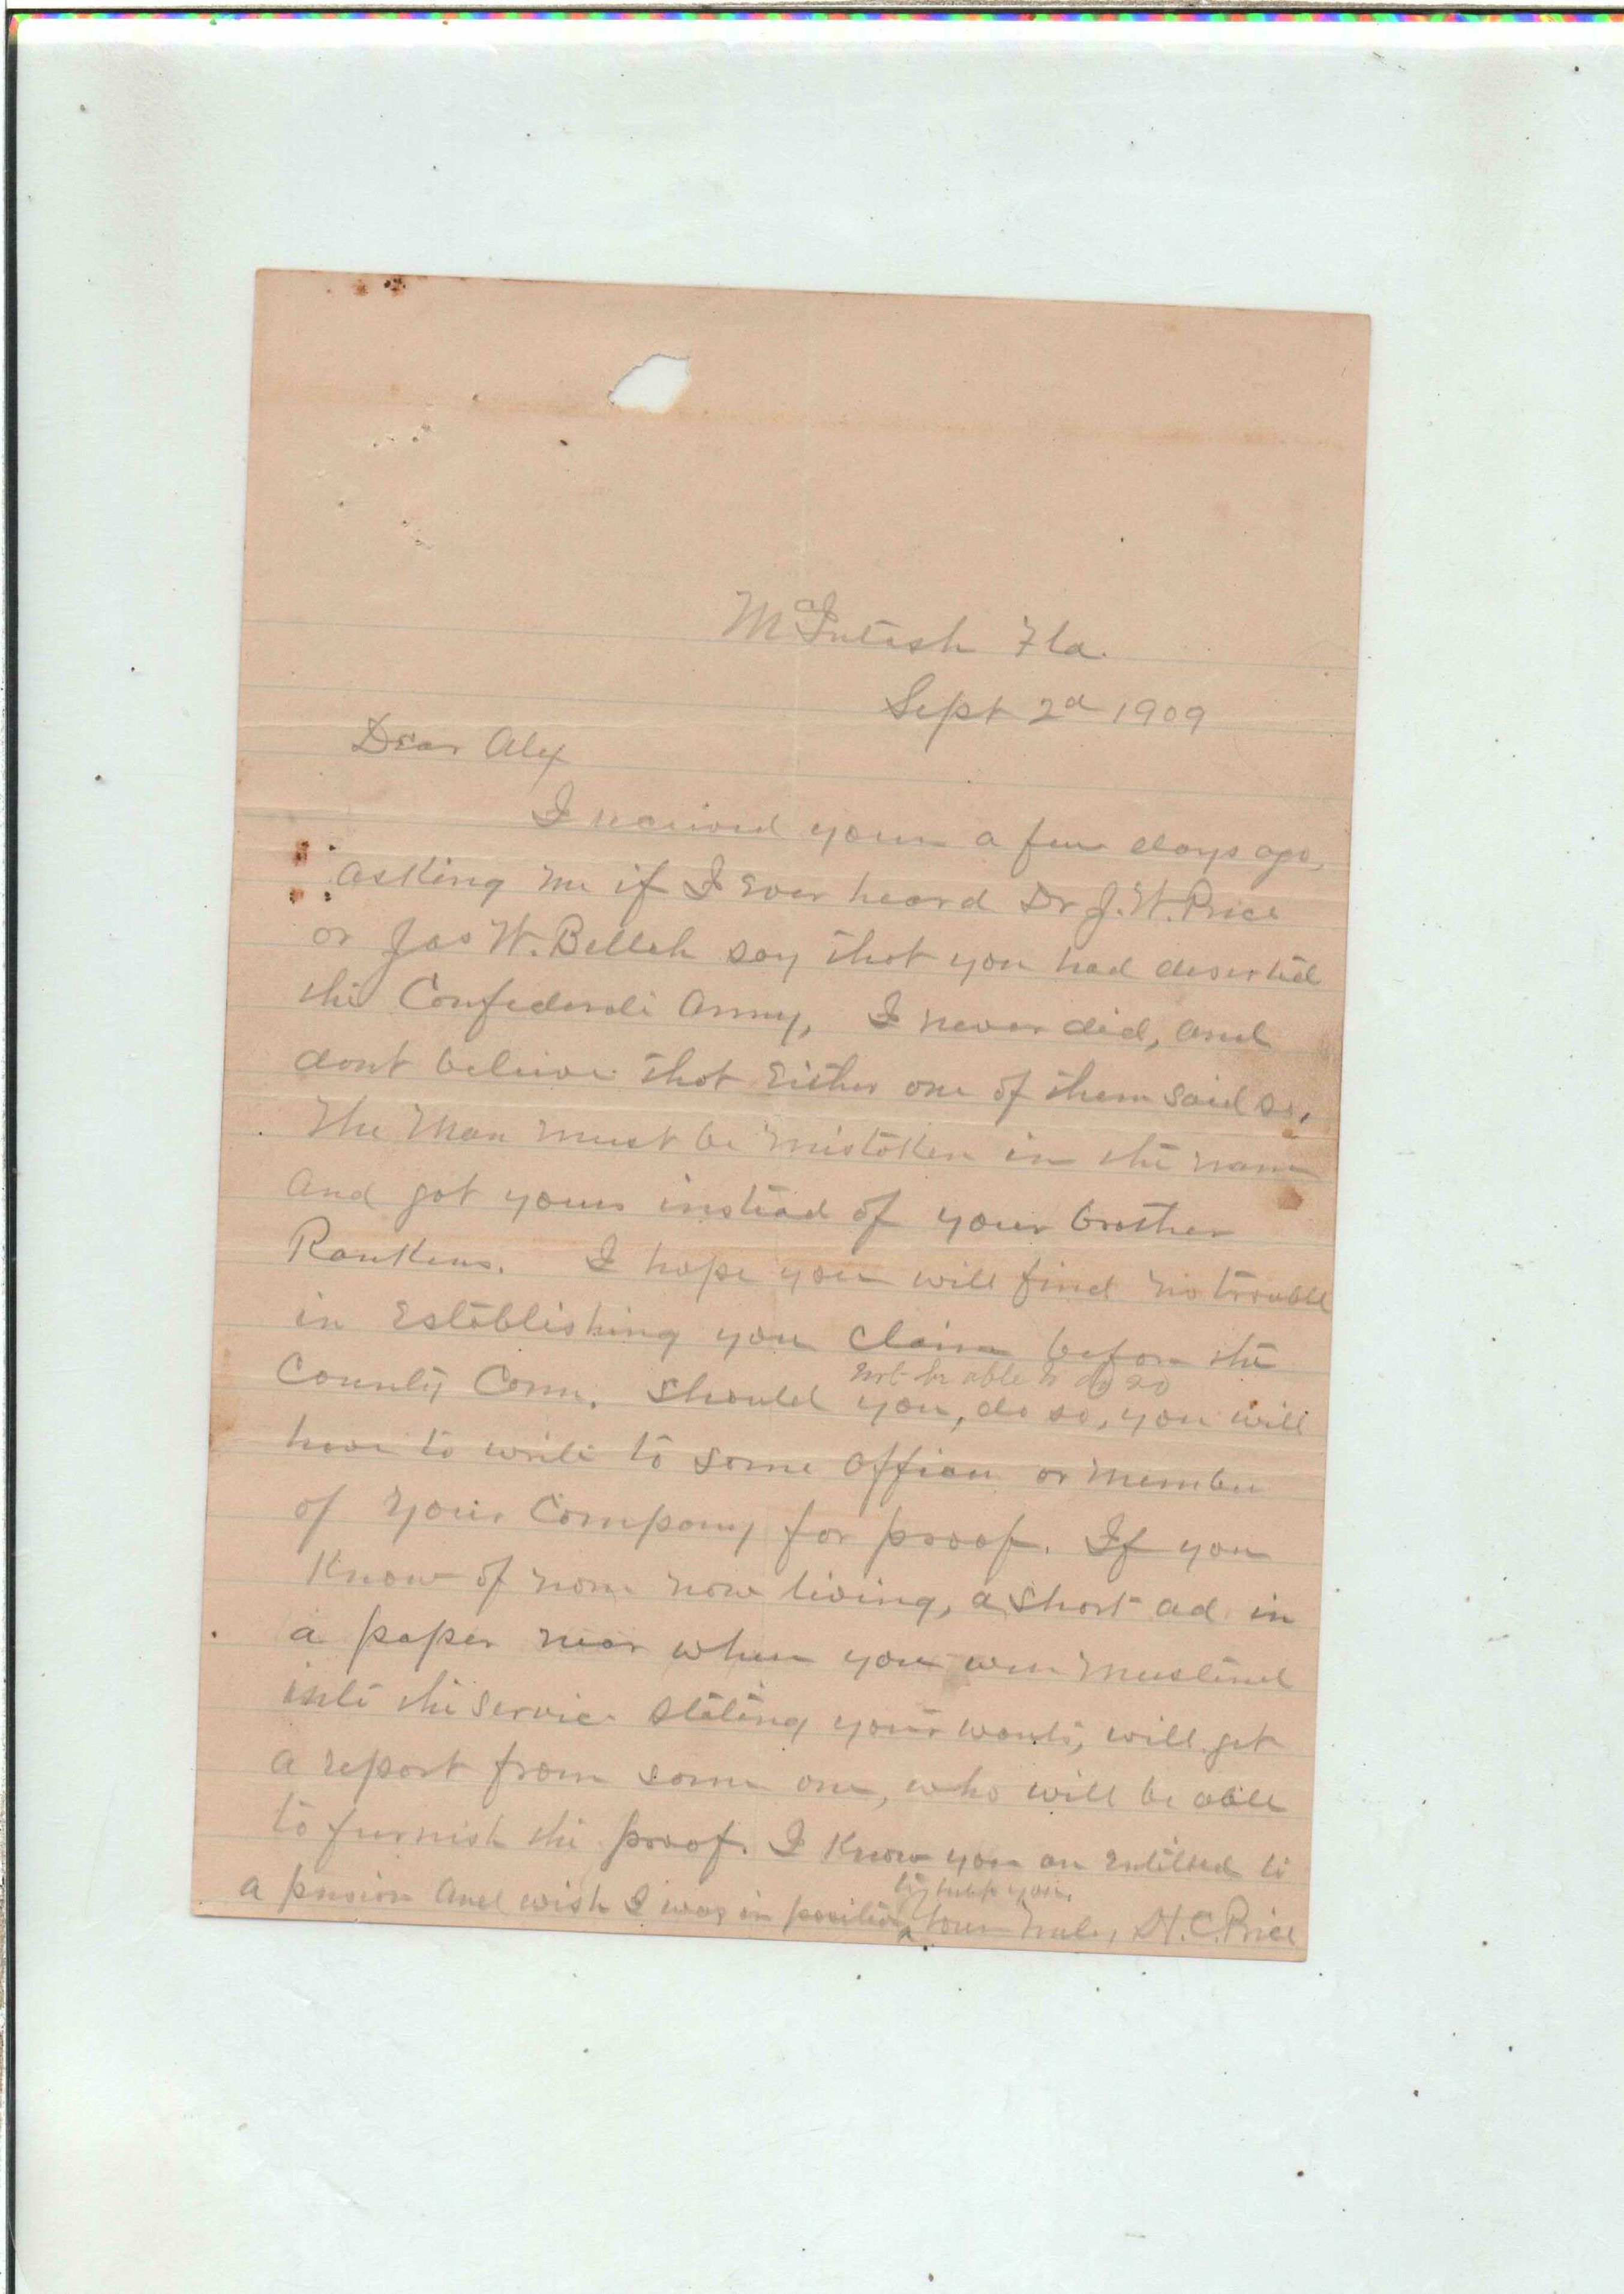 McIntosh Fla.
Sept 2d 1909
Dear Alex
I received yours a few days ago,
asking me if I ever heard Dr J. W. Price
or Jas W. Bellah say that you had deserted
the Confederate Army, I never did, and
dont believe that Either one of them said so.
The Man must be mistaken in the name
and got yours instead of your brother
Rankens. I hope you will find no trouble
in Establishing you Claim before the
not be able to do so
County Com. Should you, do so, you will
have to write to some officer or member
of your Company for proof. If you
Know of none now living, a short ad in
a paper near where you were mustered
into the service stating your wants, will get
a report from some one, who will be able
to furnish the proof. I Know you are entitled to
to help you.
a pension and wish I was in position your H. C. Price